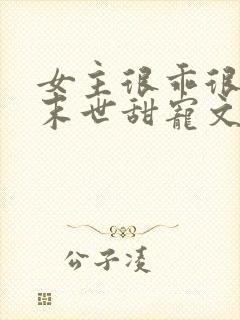 女主很乖很
末世甜宠文
公子凌